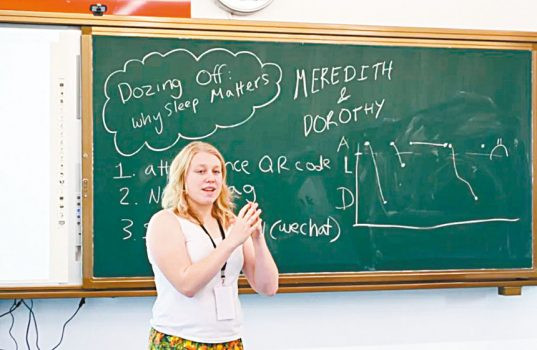 Dozing Off:
why Sleep Matters
MEREDITH
&
DOROTHY
1. QR code
2.
3. (wechat)
A
L
D